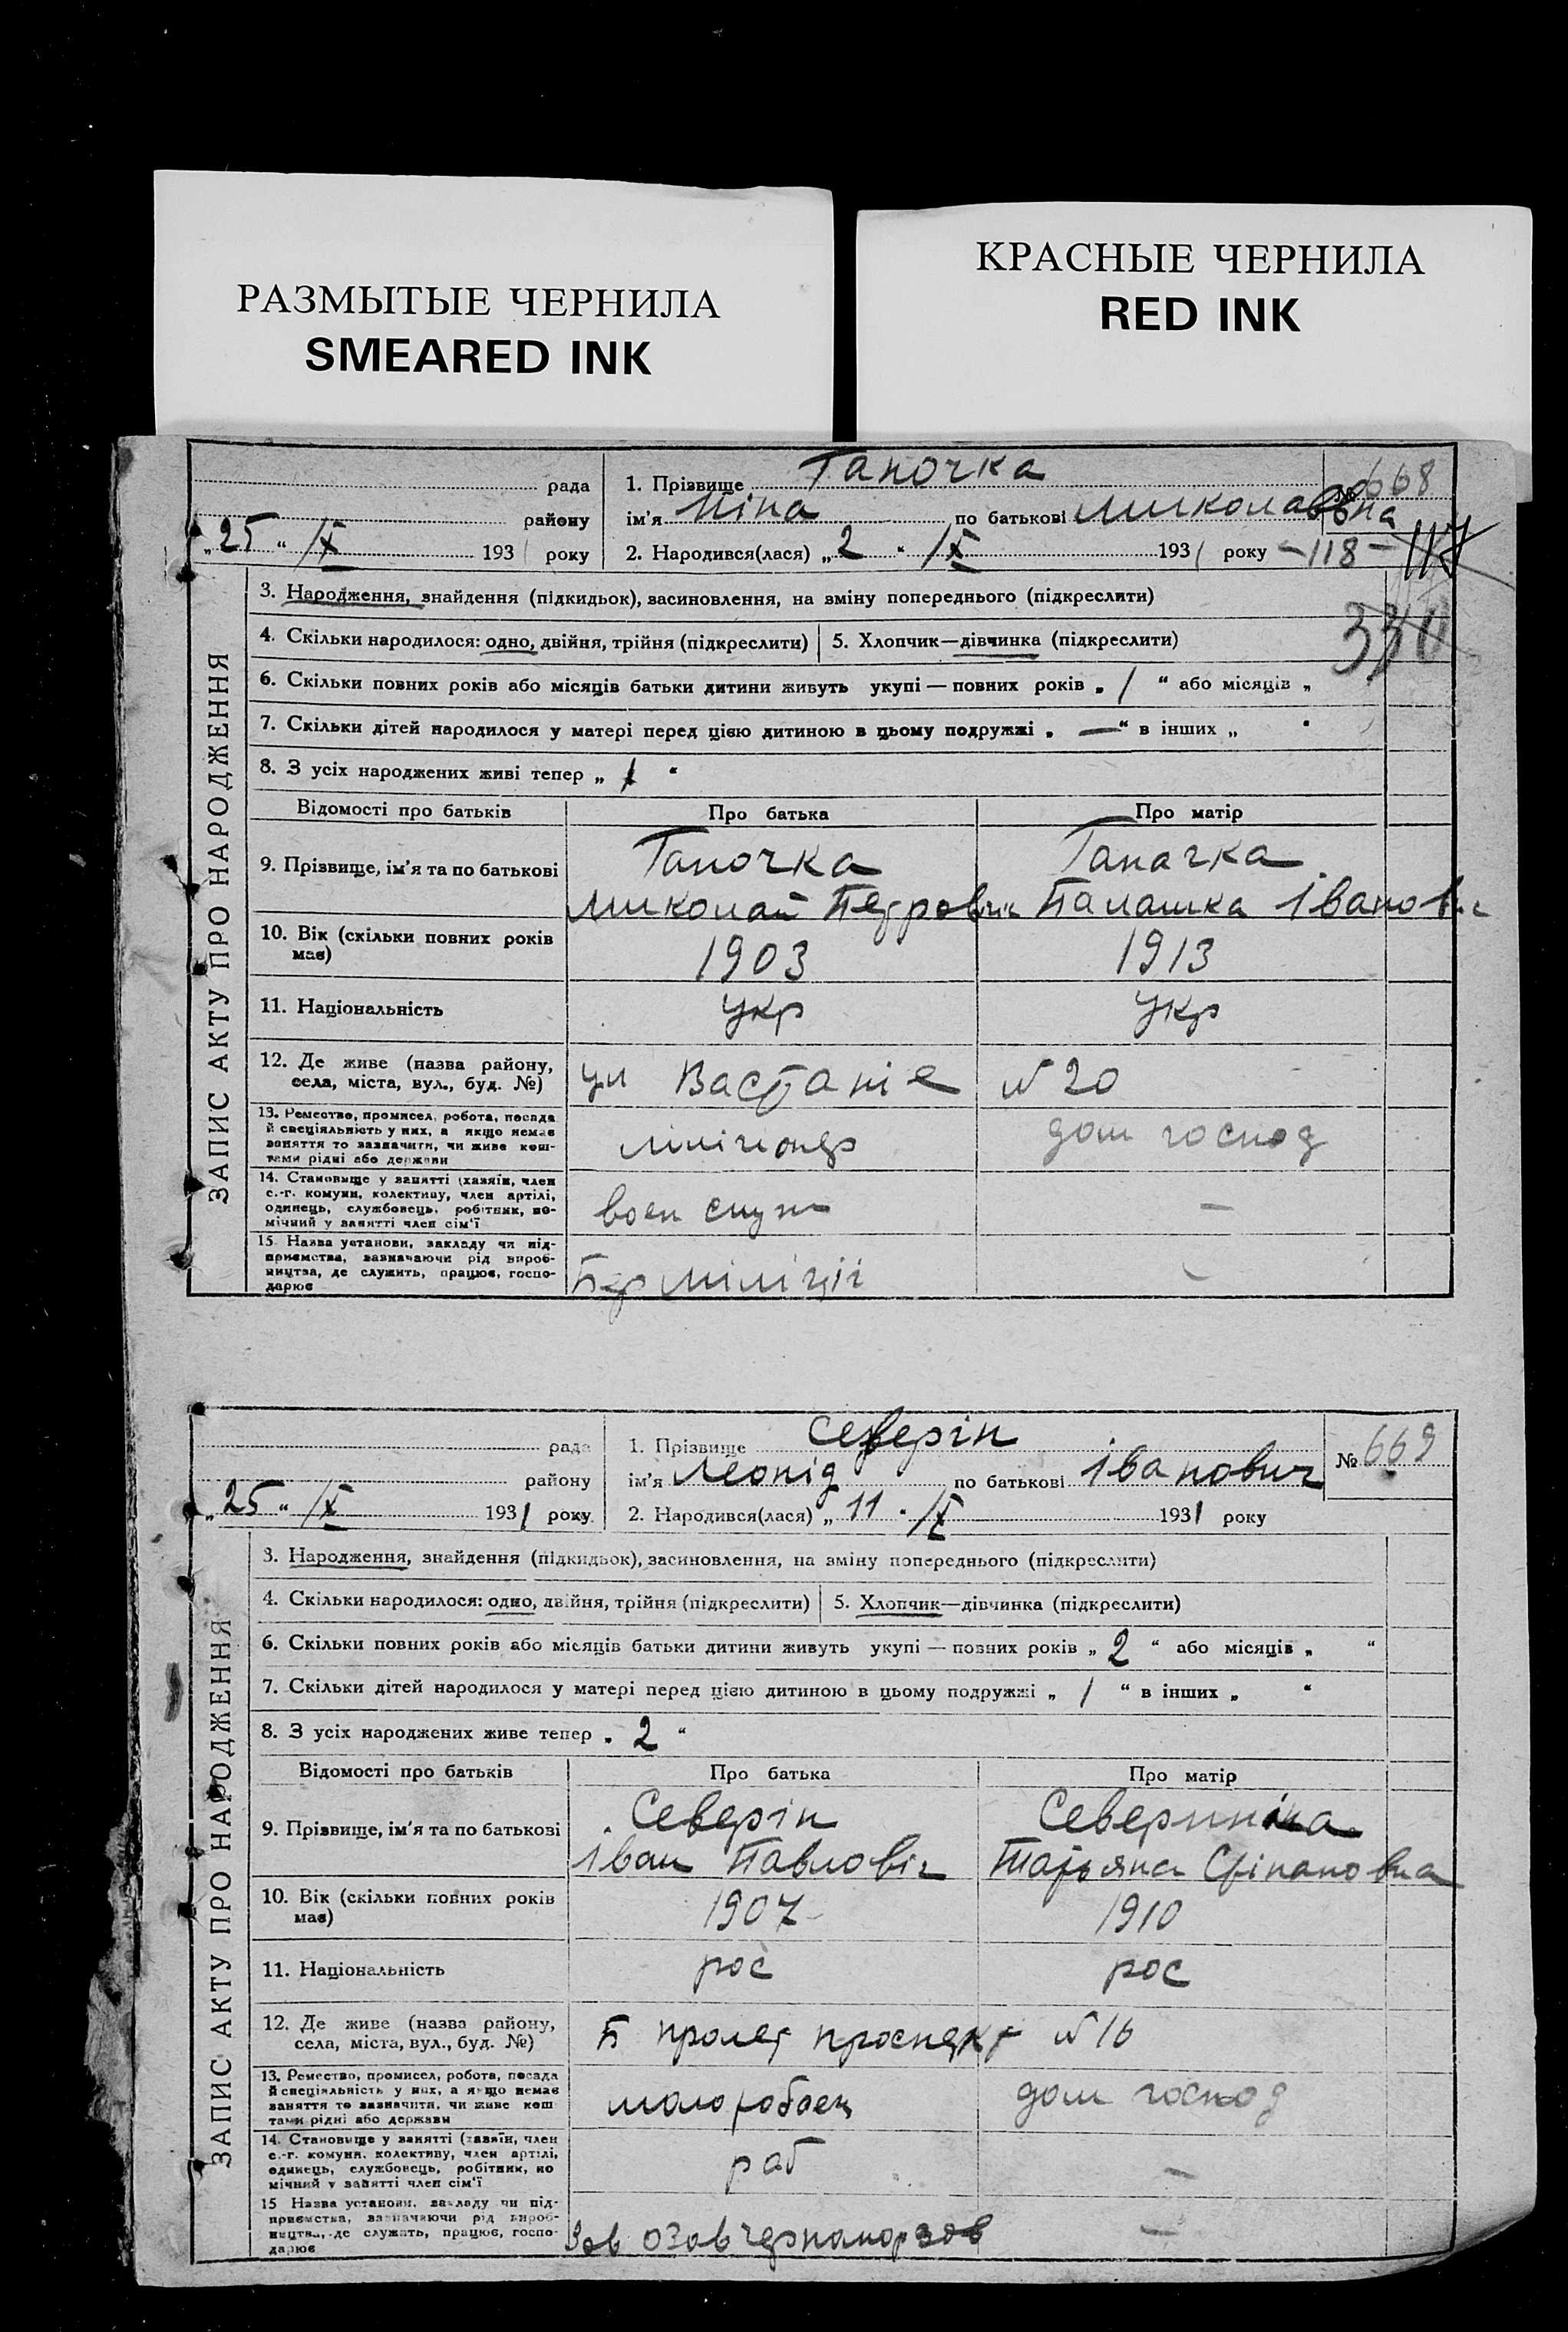 РАЗМЫТЫЕ ЧЕРНИЛА
SMEARED INK
КРАСНЫЕ ЧЕРНИЛА
RED INK
ЗАПИС АКТУ ПРО НАРОДЖЕННЯ
рада
району
„25“ IX 193 року
1. Прізвище Гапочка
668
ім'я Ніна по батькові Миколаевна
2. Народився(лася) „2“ IX 1931 року -118- 117
330
3. Народження, знайдення (підкидьок), засиновлення, на зміну попереднього (підкреслити)
4. Скільки народилося: одно, двійня, трійня (підкреслити) 5. Хлопчик—дівчинка (підкреслити)
6. Скільки повних років або місяців батьки дитини живуть укупі — повних років „1“ або місяців „
7. Скільки дітей народилося у матері перед цією дитиною в цьому подружжі „—“ в інших „ “
8. З усіх народжених живі тепер „1“
Відомості про батьків Про батька Про матір
9. Прізвище, ім'я та по батькові Гапочка Гапачка
Миколай Петрович Палашка Івановна
10. Вік (скільки повних років має) 1903 1913
11. Національність укр укр
12. Де живе (назва району, села, міста, вул., буд. №) ул Вастаніе № 20
13. Ремество, промисел, робота, посада й спеціяльність у них, а якщо немає заняття то зазначити, чи живе коштами рідні або держави міліціонер дом господ
14. Становище у занятті (хазяїн, член с.-г. комуни, колективу, член артілі, одинець, службовець, робітник, помічний у занятті член сім'ї воен служ —
15. Назва установи, закладу чи підприємства, зазначаючи рід виробництва, де служить, працює, господарює Бер міліції —
ЗАПИС АКТУ ПРО НАРОДЖЕННЯ
рада
району
„25“ IX 1931 року
1. Прізвище Северін
№ 669
ім'я Леонід по батькові Іванович
2. Народився(лася) „11“ IX 1931 року
3. Народження, знайдення (підкидьок), засиновлення, на зміну попереднього (підкреслити)
4. Скільки народилося: одно, двійня, трійня (підкреслити) 5. Хлопчик—дівчинка (підкреслити)
6. Скільки повних років або місяців батьки дитини живуть укупі — повних років „2“ або місяців „ “
7. Скільки дітей народилося у матері перед цією дитиною в цьому подружжі „1“ в інших „ “
8. З усіх народжених живе тепер „2“
Відомості про батьків Про батька Про матір
9. Прізвище, ім'я та по батькові Северін
Іван Павловіч Татьяна
10. Вік (скільки повних років має) 1907 1910
11. Національність рос рос
12. Де живе (назва району, села, міста, вул., буд. №) Б пролет проспект № 16
13. Ремество, промисел, робота, посада й спеціяльність у них, а якщо немає заняття то зазначити, чи живе коштами рідні або держави дом господ
14. Становище у занятті (хазяїн, член с.-г. комуни, колективу, член артілі, одинець, службовець, робітник, помічний у занятті член сім'ї раб —
15 Назва установи, закладу чи підприємства, зазначаючи рід виробництва, де служить, працює, господарює —